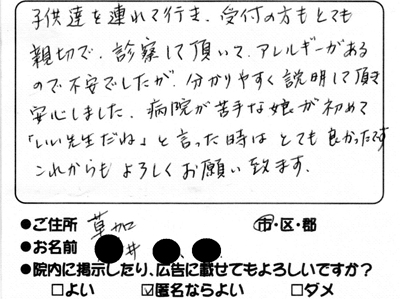 子供達を連れて行き、受付の方もとても
親切で、診察して頂いて、アレルギーがある
ので不安でしたが、分かりやすく説明して頂き
安心しました。病院が苦手な娘が初めて
「いい先生だね」と言った時はとても良かったです
これからもよろしくお願い致します。
●ご住所 草加 市・区・郡
●お名前 井
●院内に掲示したり、広告に載せてもよろしいですか？
□よい ☑匿名ならよい □ダメ